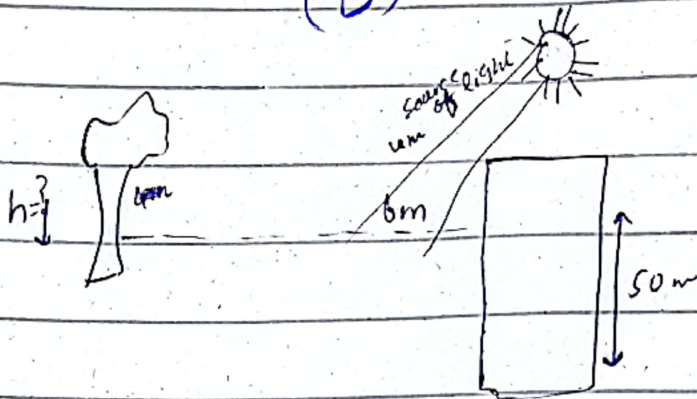 (D)
source of light
h=?
6m
50 m